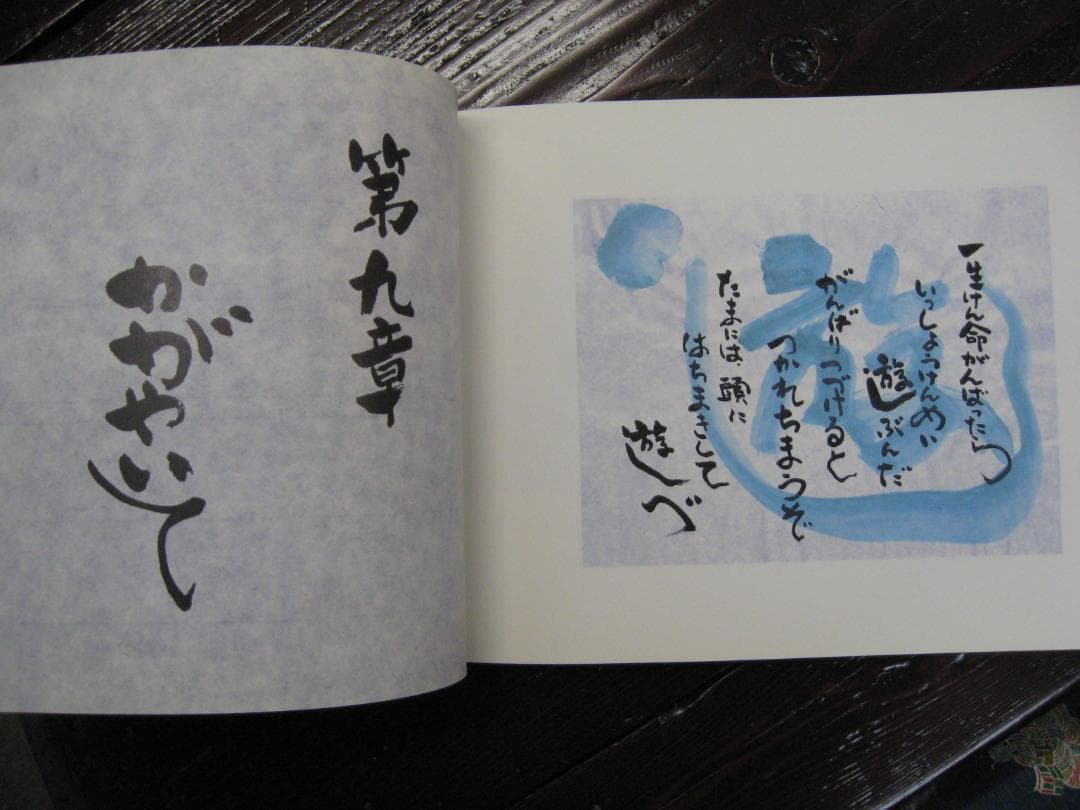 第九章
かがやいて
一生けん命がんばったら
いっしょうけんめい
遊ぶんだ
がんばりつづけると
つかれちまうぞ
たまには、頭に
はちまきして
遊べ